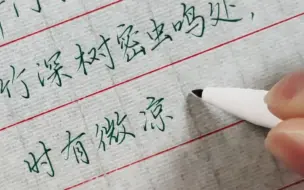 竹深树密虫鸣处,
时有微凉